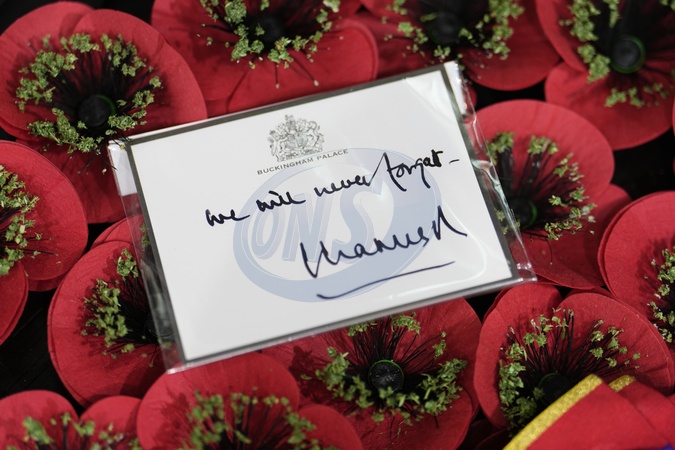 BUCKINGHAM PALACE
we will never forget –
Charles R
ONS